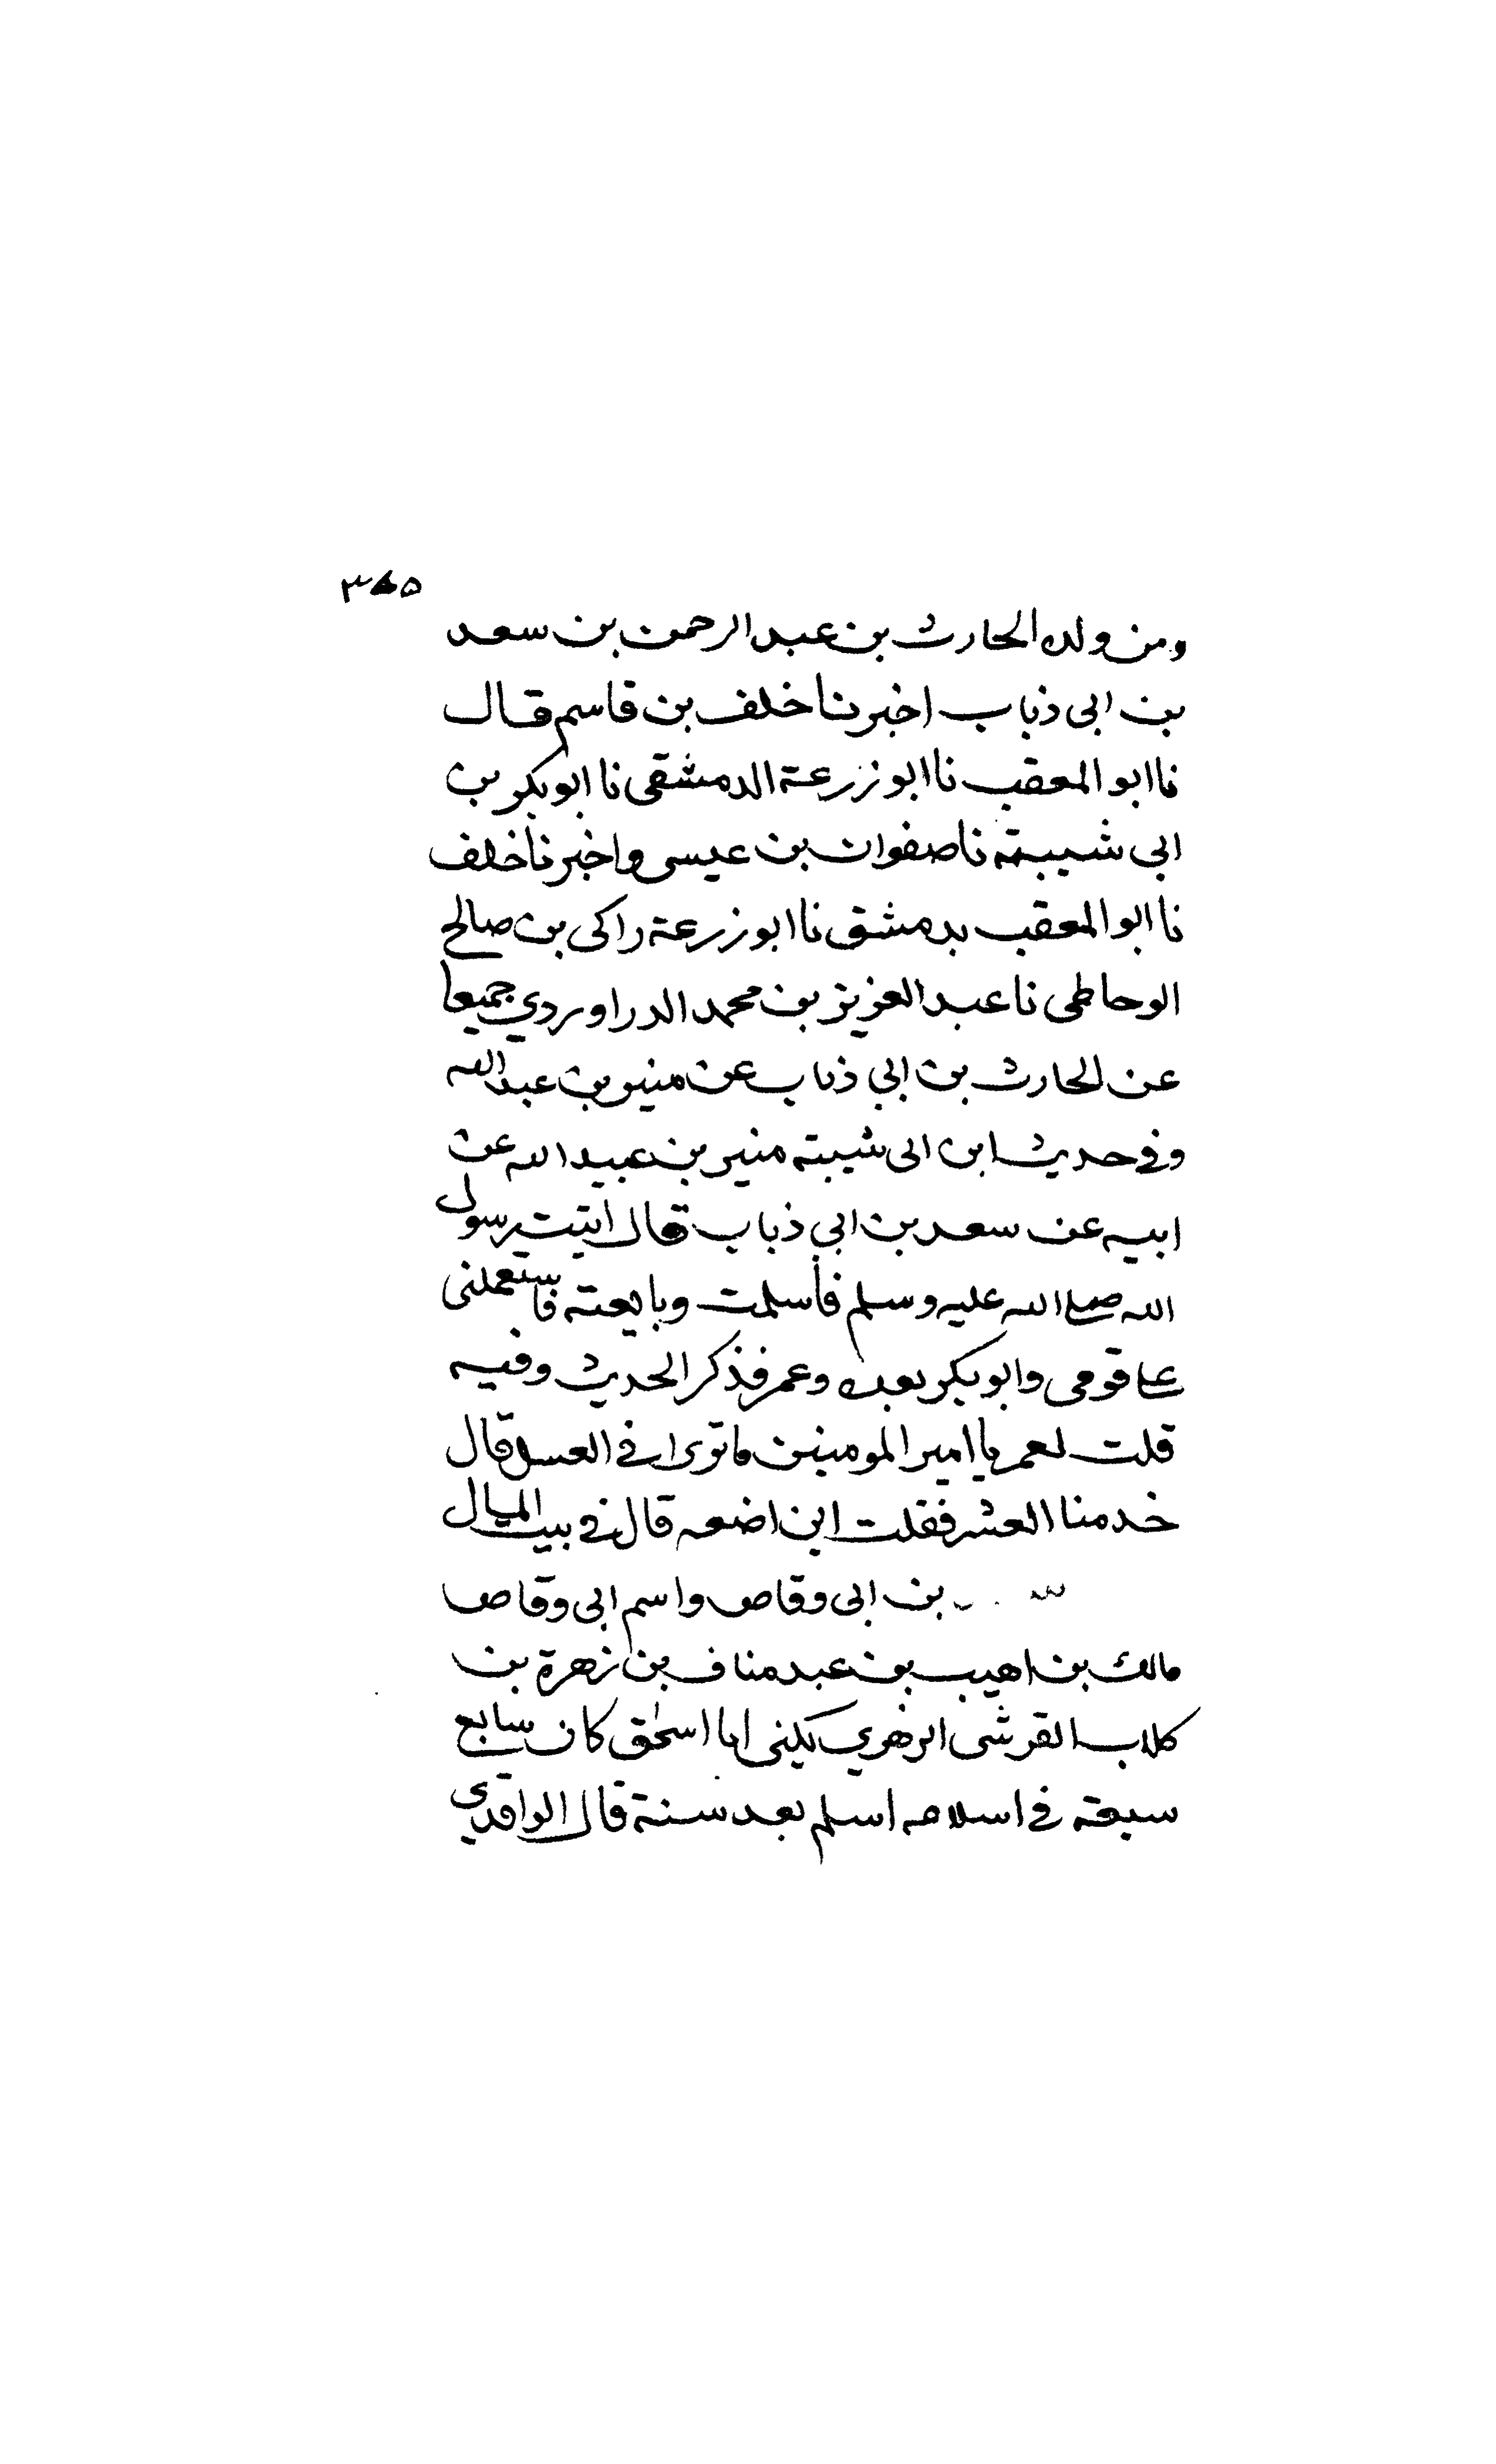 ومن ولده الحارث بن عبد الرحمن بن سعد
بن ابى ذباب اخبرنا خلف بن قاسم قال
نا ابو المعقب نا ابو زرعة الدمشقى نا ابو بكر بن
ابي شيبته نا صفوان بن عيسى واخبرنا خلف
نا ابو المعقب بدمشق نا ابو زرعة راكى بن صالح
الوحاظى نا عبد العزيز بن محمد الدراوردي جميعا
عن الحارث بن ابي ذباب عن منير بن عبد الله
وفى حديث ابن ابى شيبته منير بن عبيد الله عن
ابيه عن سعد بن ابي ذباب قال اتيت رسول
الله صلى الله عليه وسلم فأسلمت وبايعته فاستعملنى
على قومى وابو بكر بعده وعمر فذكر الحديث وفيه
قلت لعمر يا امير المومنين ما ترى فى العسل قال
خد منا العشر فقلت اين اضعه قال فى بيت المال
بن ابى وقاص واسم ابى وقاص
مالك بن اهيب بن عبد مناف بن زهرة بن
كلاب القرشى الزهري يكنى ابا اسحٰق كان سابع
سبعة فى اسلامه اسلم بعد ستة قال الواقدي